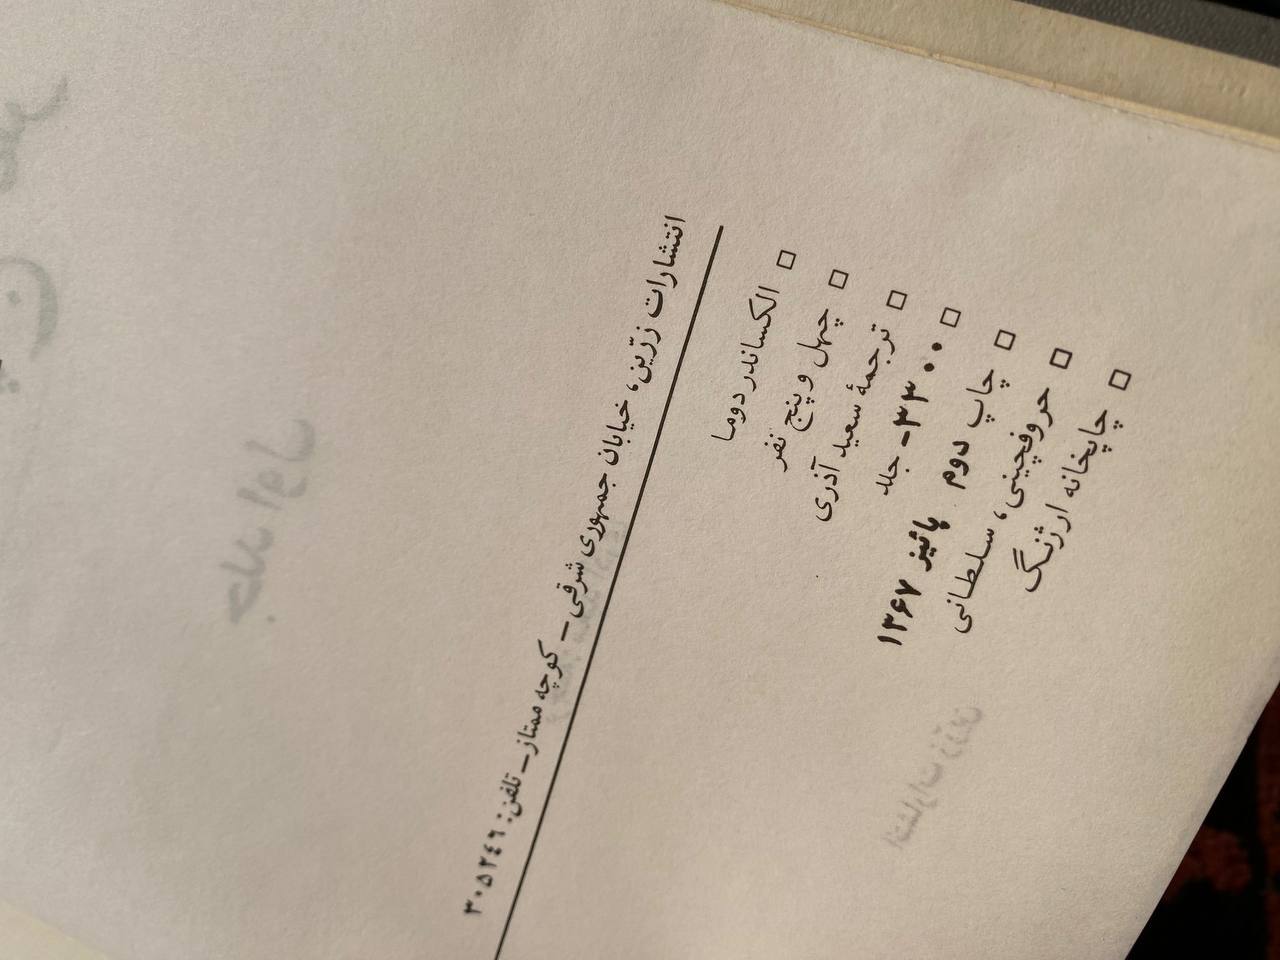 انتشارات زرّین، خیابان جمهوری شرقی - کوچه ممتاز - تلفن: ۳۰۵۲۴۶
□ الکساندر دوما
□ چهل و پنج نفر
□ ترجمهٔ سعید آذری
□ ۳۳۰۰- جلد
□ چاپ دوم پائیز ۱۳۶۷
□ حروفچینی، سلطانی
□ چاپخانه ارژنگ